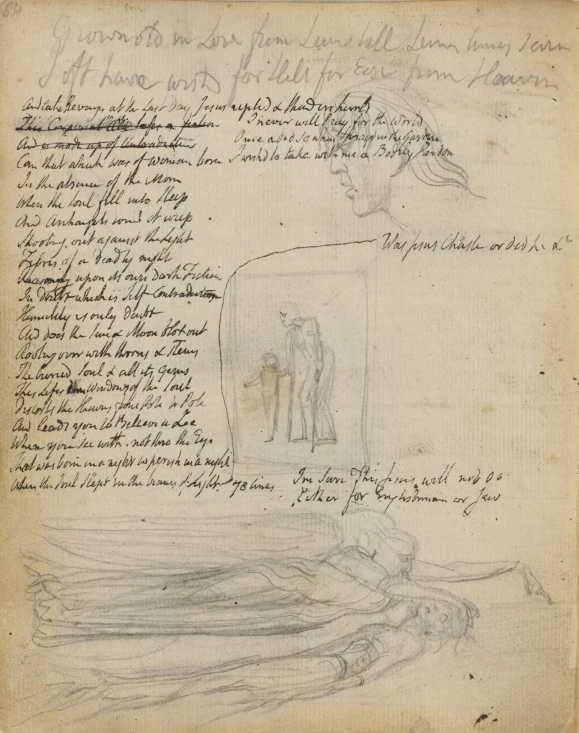 54
Grown old in Love from Seven till Seven times Seven
I oft have wishd for Hell for Ease from Heaven
And take Revenge at the Last Day Jesus replied & thunders hurld
This Corporeal life's a fiction I never will Pray for the World
And is made up of Contradiction Once I did so when I prayd in the Garden
Can that which was of woman born I wishd to take with me a Bodily Pardon
In the absence of the Morn
When the Soul fell into Sleep
And Archangels round it weep
Shooting out against the Light
Fibres of a deadly night
Reasoning upon its own Dark Fiction
In Doubt which is Self Contradiction
Humility is only Doubt
And does the Sun & Moon blot out
Rooting over with thorns & stems
The buried Soul & all its Gems
This Lifes dim Windows of the Soul
Distorts the Heavens from Pole to Pole
And leads you to Believe a Lie
When you see with not thro the Eye
That was born in a night to perish in a night
When the Soul slept in the beams of Light. 78 lines
Was Jesus Chaste or did he &c
Im Sure This Jesus will not do
Either for Englishman or Jew